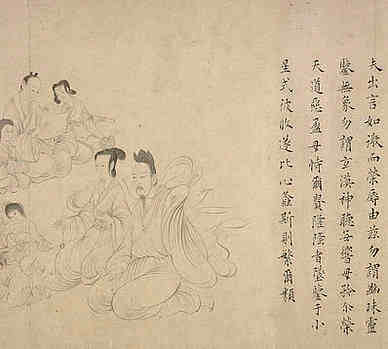 夫出言如微而榮辱由茲勿謂幽昧靈
鑒無象勿謂玄漠神聽無響毋矜尔榮
天道惡盈毋恃爾貴隆隆者墜鑒于小
星式彼攸遂比心螽斯則繁爾類